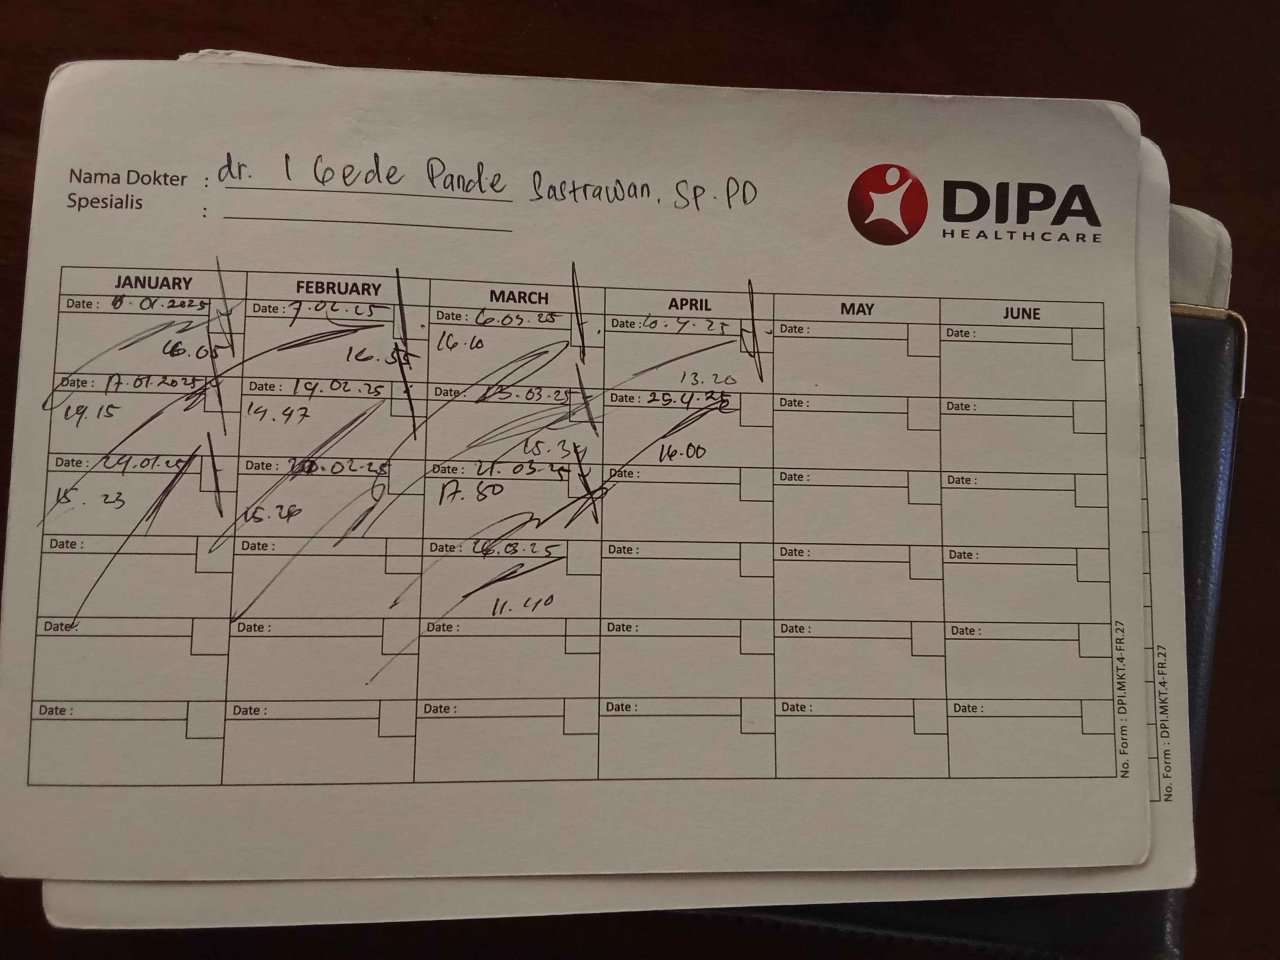 Nama Dokter : dr. I Gede Pande Sastrawan. Sp.PD
Spesialis :
DIPA
HEALTHCARE
JANUARY FEBRUARY MARCH APRIL MAY JUNE
Date : .01.2025 Date : 7.02.25 Date : 6.03.25 Date : 10.4.25 Date : Date :
16.05 16.55 16.10 13.20
Date : 17.01.2025 Date : 19.02.25 Date : 13.03.25 Date : 25.4.25 Date : Date :
19.15 19.47 15.34 16.00
Date : 29.01.25 Date : .02.25 Date : 21.03.25 Date : Date : Date :
15.23 15.26 17.50
Date : Date : Date : 26.03.25 Date : Date : Date :
11.40
Date : Date : Date : Date : Date : Date :
Date : Date : Date : Date : Date : Date :
No. Form : DPI.MKT.4-FR.27
No. Form : DPI.MKT.4-FR.27